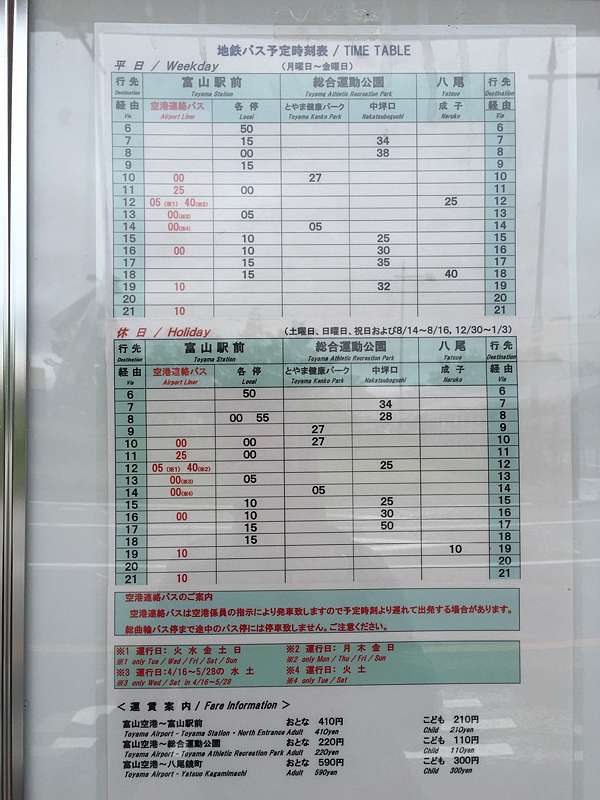 地鉄バス予定時刻表 / TIME TABLE
平 日 / Weekday （月曜日～金曜日）
行 先 富 山 駅 前 総 合 運 動 公 園 八 尾 行 先
Destination Toyama Station Toyama Athletic Recreation Park Yatsuo Destination
経 由 空港連絡バス 各 停 とやま健康パーク 中 坪 口 成 子 経 由
Via Airport Liner Local Toyama Kenko Park Nakatsuboguchi Naruko Via
6 50 6
7 15 34 7
8 00 38 8
9 15 9
10 00 27 10
11 25 00 11
12 05 (※1) 40(※2) 25 12
13 00(※3) 05 13
14 00(※4) 05 14
15 10 25 15
16 00 10 30 16
17 15 35 17
18 15 40 18
19 10 32 19
20 20
21 10 21
休 日 / Holiday （土曜日、日曜日、祝日および8/14～8/16, 12/30～1/3）
行 先 富 山 駅 前 総 合 運 動 公 園 八 尾 行 先
Destination Toyama Station Toyama Athletic Recreation Park Yatsuo Destination
経 由 空港連絡バス 各 停 とやま健康パーク 中 坪 口 成 子 経 由
Via Airport Liner Local Toyama Kenko Park Nakatsuboguchi Naruko Via
6 50 6
7 34 7
8 00 55 28 8
9 27 9
10 00 00 27 10
11 25 00 11
12 05 (※1) 40(※2) 25 12
13 00(※3) 05 13
14 00(※4) 05 14
15 10 25 15
16 00 10 30 16
17 15 50 17
18 15 18
19 10 10 19
20 20
21 10 21
空港連絡バスのご案内
空港連絡バスは空港係員の指示により発車致しますので予定時刻より遅れて出発する場合があります。
総曲輪バス停まで途中のバス停には停車致しません。ご注意ください。
※1 運行日： 火 水 金 土 日 ※2 運行日： 月 木 金 日
※1 only Tue / Wed / Fri / Sat / Sun ※2 only Mon / Thu / Fri / Sun
※3 運行日：4/16～5/28の 水 土 ※4 運行日： 火 土
※3 only Wed / Sat in 4/16～5/28 ※4 only Tue / Sat
＜ 運 賃 案 内 / Fare Information ＞
富山空港～富山駅前 おとな 410円 こども 210円
Toyama Airport - Toyama Station・North Entrance Adult 410yen Child 210yen
富山空港～総合運動公園 おとな 220円 こども 110円
Toyama Airport - Toyama Athletic Recreation Park Adult 220yen Child 110yen
富山空港～八尾鏡町 おとな 590円 こども 300円
Toyama Airport - Yatsuo Kagamimachi Adult 590yen Child 300yen